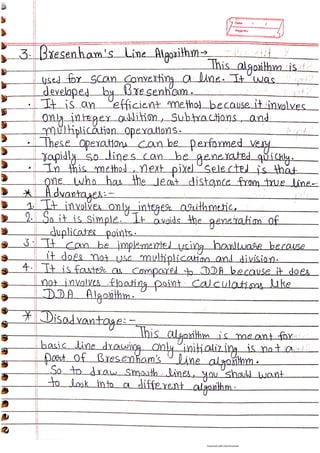 3. Bresenham's Line Algorithm →
This algorithm is
used for scan converting a line. It was
developed by Bresenham.
• It is an efficient method because it involves
only integer addition, Subtractions, and
multiplication operations.
• These operations can be performed very
rapidly so lines can be generated quickly.
• In this method, next pixel selected is that
one who has the least distance from true line.
* Advantages:-
1. It involves only integer arithmetic.
2. So it is simple. It avoids the generation of
duplicate points.
3. It can be implemented using hardware because
it does not use multiplication and division.
4. It is faster as compared to DDA because it does
not involves floating point calculations like
DDA Algorithm.
* Disadvantage:-
This algorithm is meant for
basic line drawing only initializing is not a
part of Bresenham's line algorithm.
So to draw smooth lines, you should want
to look into a different algorithm.
Scanned with CamScanner